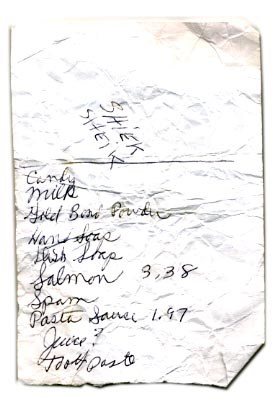 SHIEK
SHEIK
Candy
Milk
Gold Bond Powder
Hand Soap
Dish Soap
Salmon 3,38
Spam
Pasta Sauce 1.97
Juice?
Toothpaste